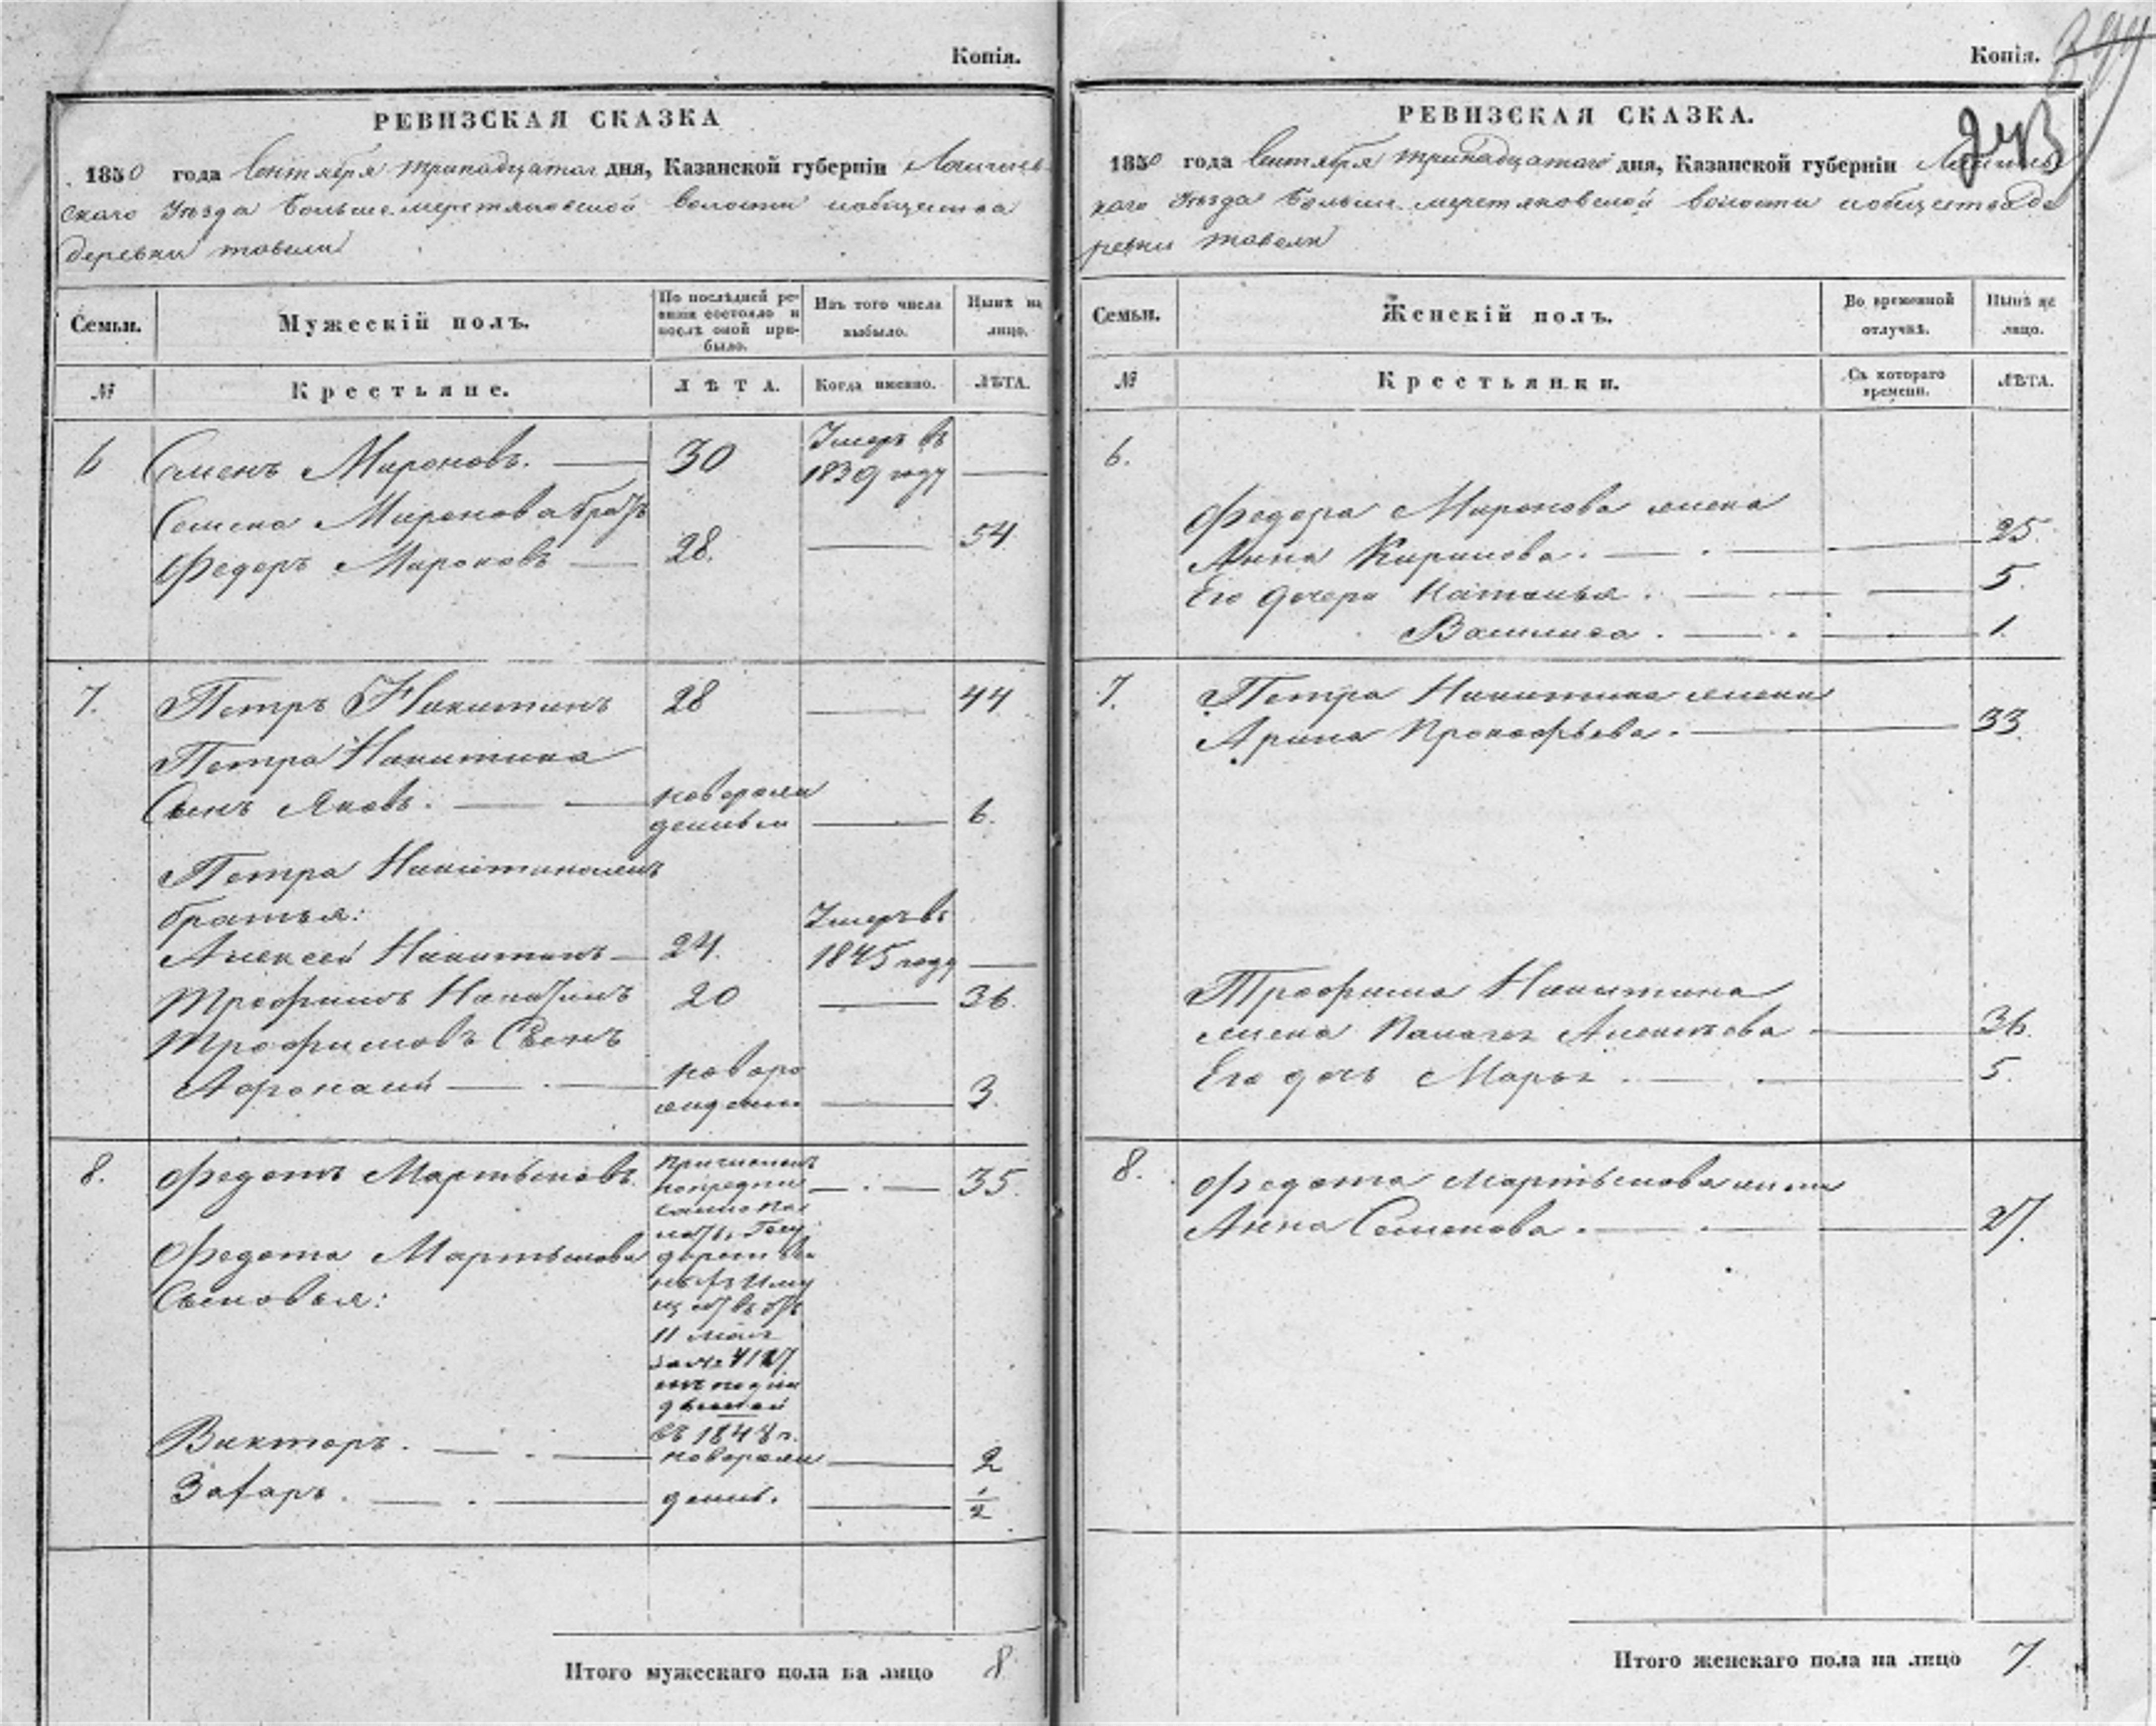 Копія.
РЕВИЗСКАЯ СКАЗКА
1850 года Сентября тринадцатого дня, Казанской губерніи Лаишев
скаго Уезда Большемеретяковской волости и общества
деревни тавели
Семьи.
Мужескій полъ.
По послѣдней ре-
визіи состояло и
послѣ оной при-
было.
Изъ того числа
выбыло.
Нынѣ на
лицо.
№
Крестьяне.
ЛѢТА.
Когда именно.
ЛѢТА.
6 Семенъ Мироновъ. 30 Умеръ въ
1839 году
Семена Миронова братъ
Федоръ Мироновъ 28. 54.
7. Петръ Никитинъ 28 44
Петра Никитина
Сынъ Яковъ. новорож
денный 6.
Петра Никитина
братья:
Алексей Никитинъ 24. Умеръ въ
1845 году
Трофимъ Никитинъ 20 36.
Трофимовъ Сынъ
Афонасий новоро
жденны 3.
8. Федотъ Мартыновъ. Причисленъ 35.
по предпи
санію Па
латы Госу
дарствен
ныхъ Иму
ществъ отъ
11 мая
за № 4127
съ 1848 г.
Федота Мартынова
Сыновья:
Викторъ. новорож 2
Захаръ. денны. 1/2
Итого мужескаго пола на лицо 8.
Копія.
399
243
РЕВИЗСКАЯ СКАЗКА.
1850 года Сентября тринадцатаго дня, Казанской губерніи Лаишев
скаго Уезда Большемеретяковской волости и общества де
ревни тавели
Семьи.
Женскій полъ.
Во временной
отлучкѣ.
Нынѣ на
лицо.
№
Крестьянки.
Съ котораго
времени.
ЛѢТА.
6.
Федора Миронова жена
Анна Кирилова. 25.
Его дочери Наталья. 5.
Василиса. 1.
7. Петра Никитина жена
Арина Прокофьева. 33.
Трофима Никитина
жена Палагея Алексеева 36.
Его дочь Марья. 5.
8. Федота Мартынова жена
Анна Семенова. 27.
Итого женскаго пола на лицо 7.